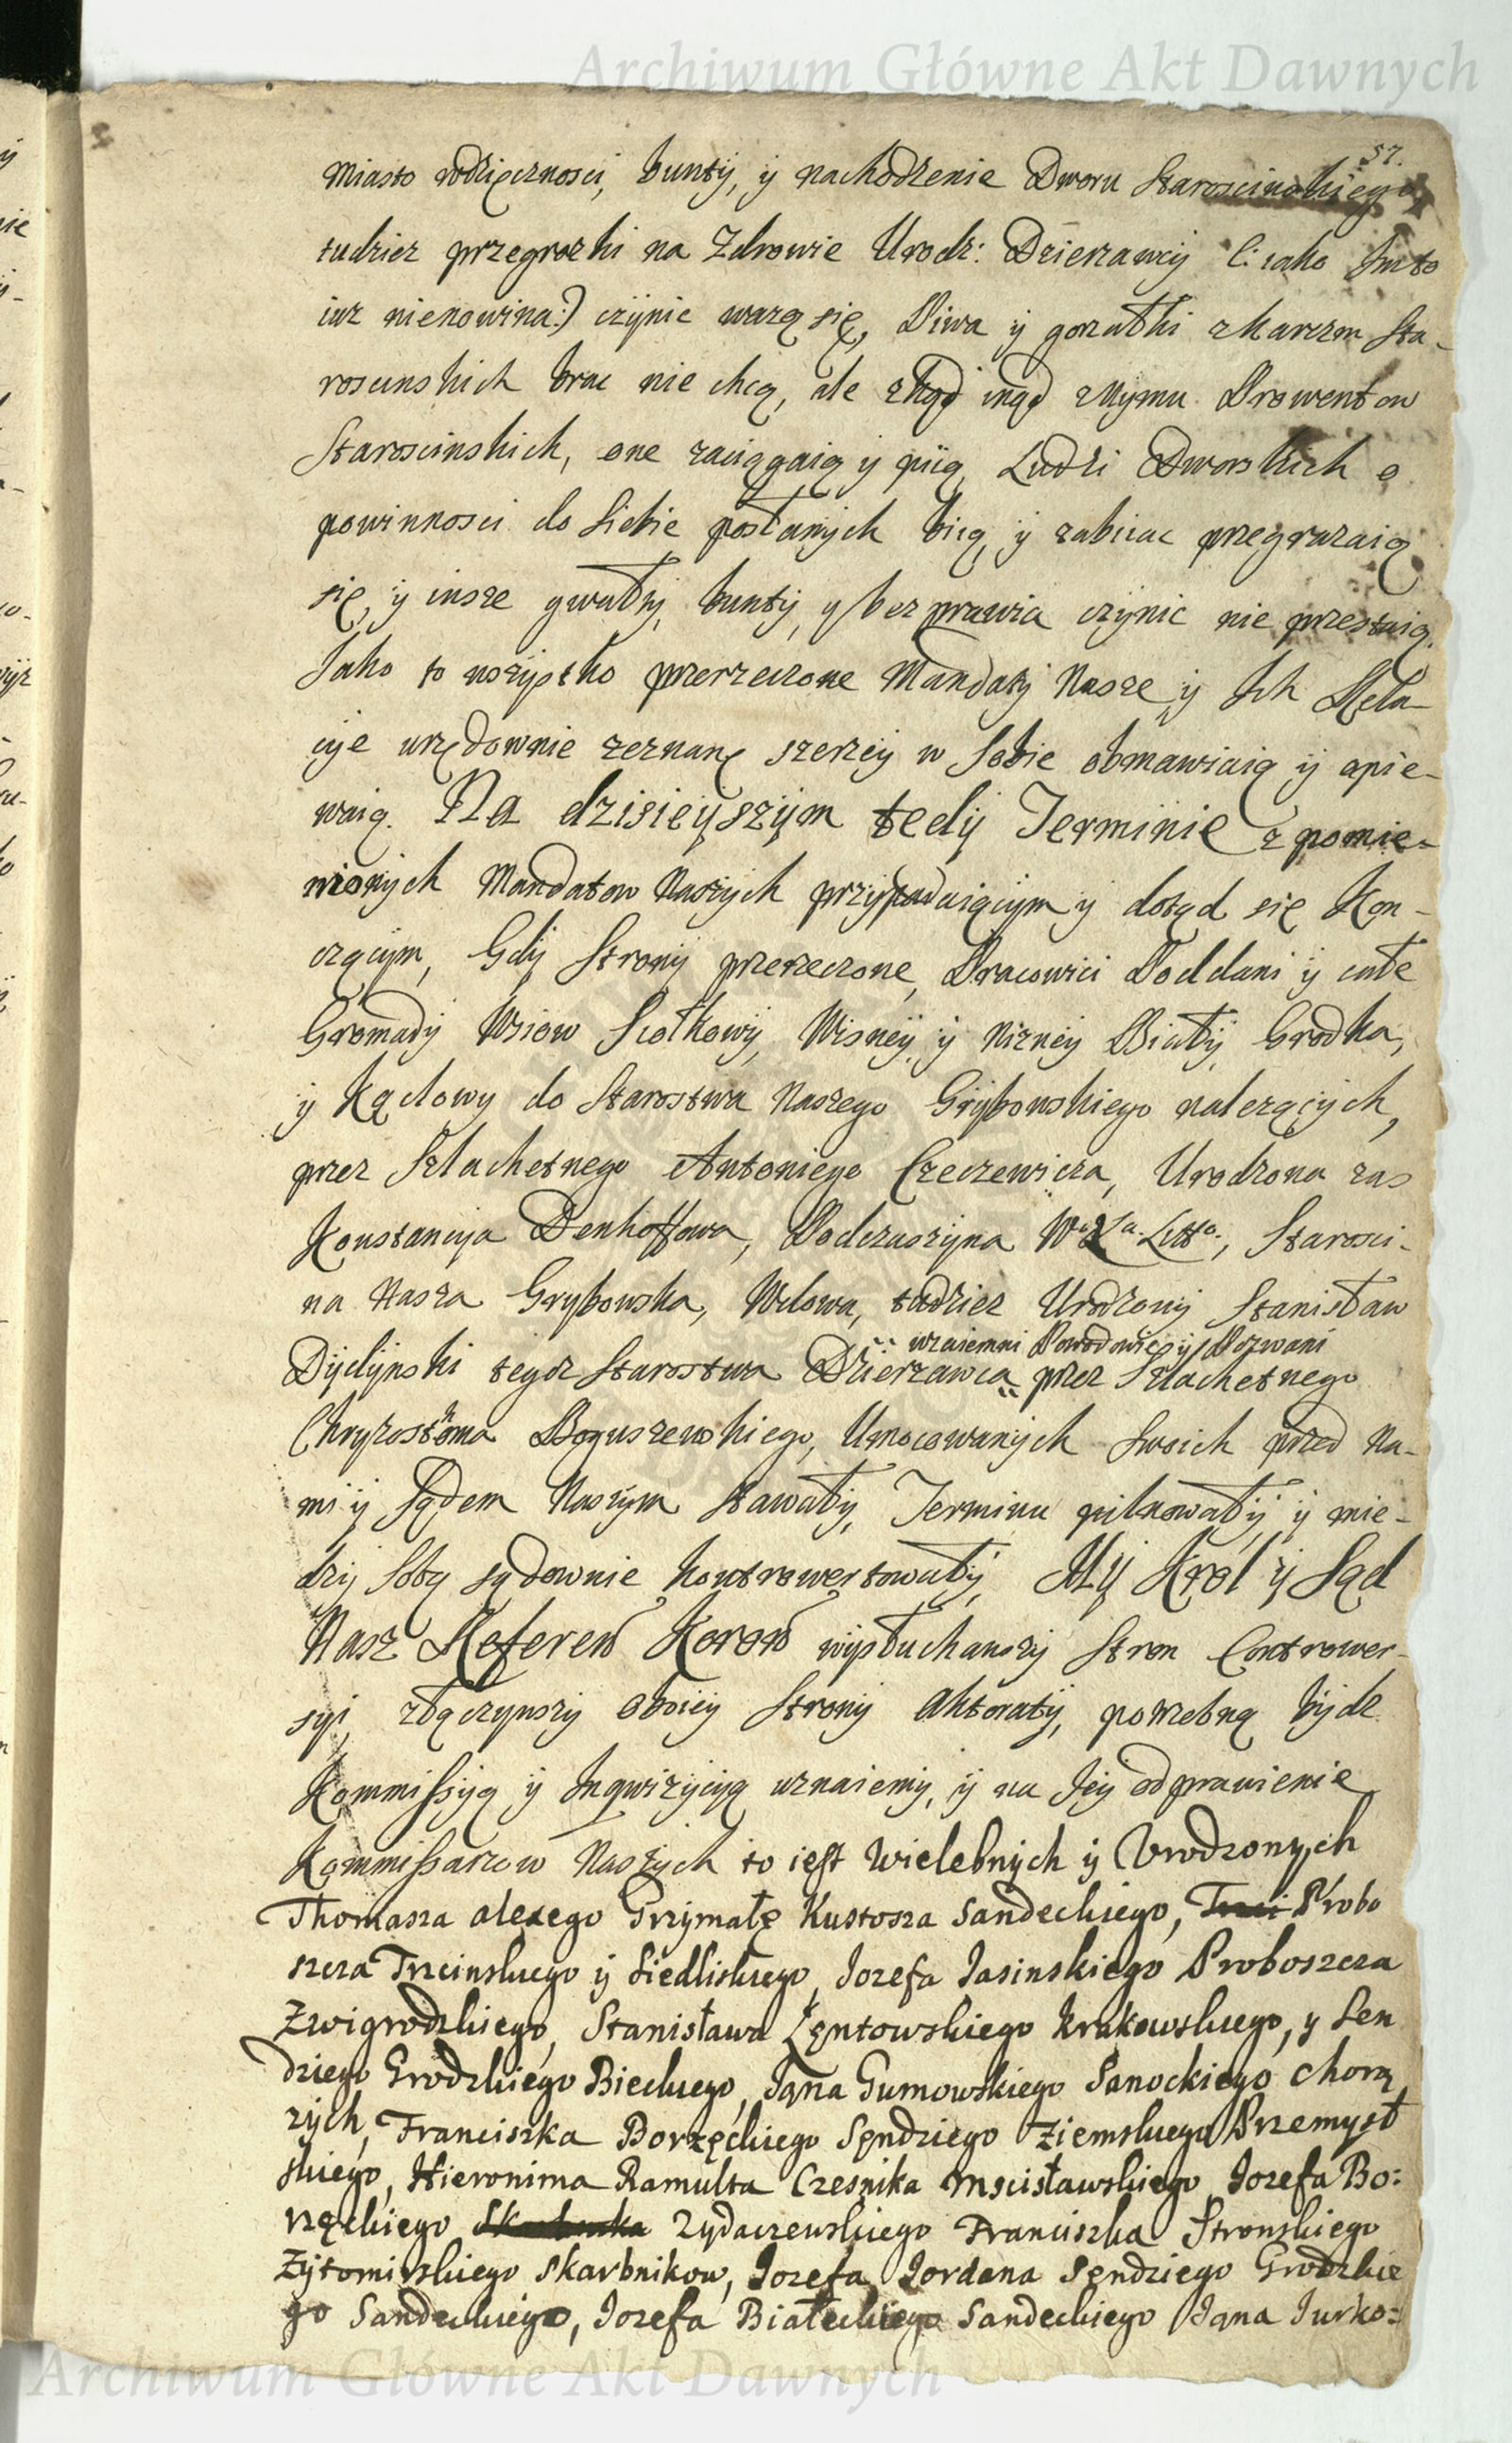 Archiwum Główne Akt Dawnych
57.
miasto wdzięcznosci, bunty, ÿ nachodzenie Dworu Staroscinskiego,
tudziez przegrozki na Zdrowie Urodz: Dzierzawcÿ (: iako Im to
iuz nienowina:) czÿnic wazą się, Piwa ÿ gorzałki z karczm Sta-
roscinskich brac nie chcą, ale zkąd inąd Prowentow
Staroscinskich, one zaciągaią ÿ piią, Ludzi Dworskich o
powinnosci do siebie posłanÿch biią, ÿ zabiiac przegrazaią
się, ÿ insze gwałtÿ, buntÿ, ÿ bezprawia czÿnic nie przestaią.
Jako to wszÿstko przerzeczone Mandatÿ Nasze ÿ Ich Rela-
cÿie urzędownie zeznane szerzeÿ w sobie obmawiaią ÿ opie-
waią. Na dzisieÿszÿm tedÿ Terminie z pomie-
nionÿch Mandatow Naszÿch przÿpadaiącÿm ÿ dotąd się kon-
czącÿm, Gdÿ Stronÿ przerzeczone, Pracowici Poddani ÿ całe
Gromadÿ Wsiow Siołkowÿ, Wisneÿ ÿ Nizneÿ Białÿ, Grodka,
ÿ Kąclowy do Starostwa Naszego Grÿbowskiego nalezącÿch,
przez Szlachetnego Antoniego Czeczewicza, Urodzona zas
Konstancÿa Denhoffowa, Podczaszÿna W. X. Litto:, Starosci-
na Nasza Grybowska, Wdowa, tudziez Urodzonÿ Stanisław
wzaiemni Powodowie ÿ Pozwani
Dÿdÿnski tegoz Starostwa Dzierzawca przez Szlachetnego
Chryzostoma Boguszewskiego, Umocowanÿch swoich przed Na-
mi ÿ Sądem Naszÿm stawałÿ, Terminu pilnowałÿ, ÿ mie-
dzÿ sobą sądownie kontrowertowałÿ, MŸ Krol ÿ Sąd
Nasz Referen Koron wÿsłuchawszÿ Stron Contrower-
sÿi, złączÿwszÿ oboieÿ Stronÿ Aktoratÿ, potrzebną bÿdz
Kommissÿą ÿ Inqwizÿcÿą uznaiemÿ, ÿ na Ieÿ odprawienie
Kommissarzow Naszÿch to iest Wielebnÿch ÿ Vrodzonych
Thomasza alexego Grzÿmałę Kustosza Sandeckiego, Trzci Probo
szcza Trzcinskiego ÿ Siedliskiego, Jozefa Jasinskiego Proboszcza
Zwigrodzkiego, Stanisława Lęntowskiego krakowskiego, y Sen
dziego Grodzkiego Bieckiego, Jana Gumowskiego Sanockiego Chorą
zÿch, Franciszka Borzęckiego Sęndziego Ziemskiego Przemysł
skiego, Hieronima Ramulta Czesnika Mscisławskiego Jozefa Bo:
rzęckiego Skarbnika Zydaczewskiego Franciszka Stronskiego
Zÿtomirskiego skarbnikow, Jozefa Jordana Sęndziego Grodzkie
go Sandeckiego, Jozefa Białeckiego Sandeckiego Jana Jurko:
Archiwum Główne Akt Dawnych